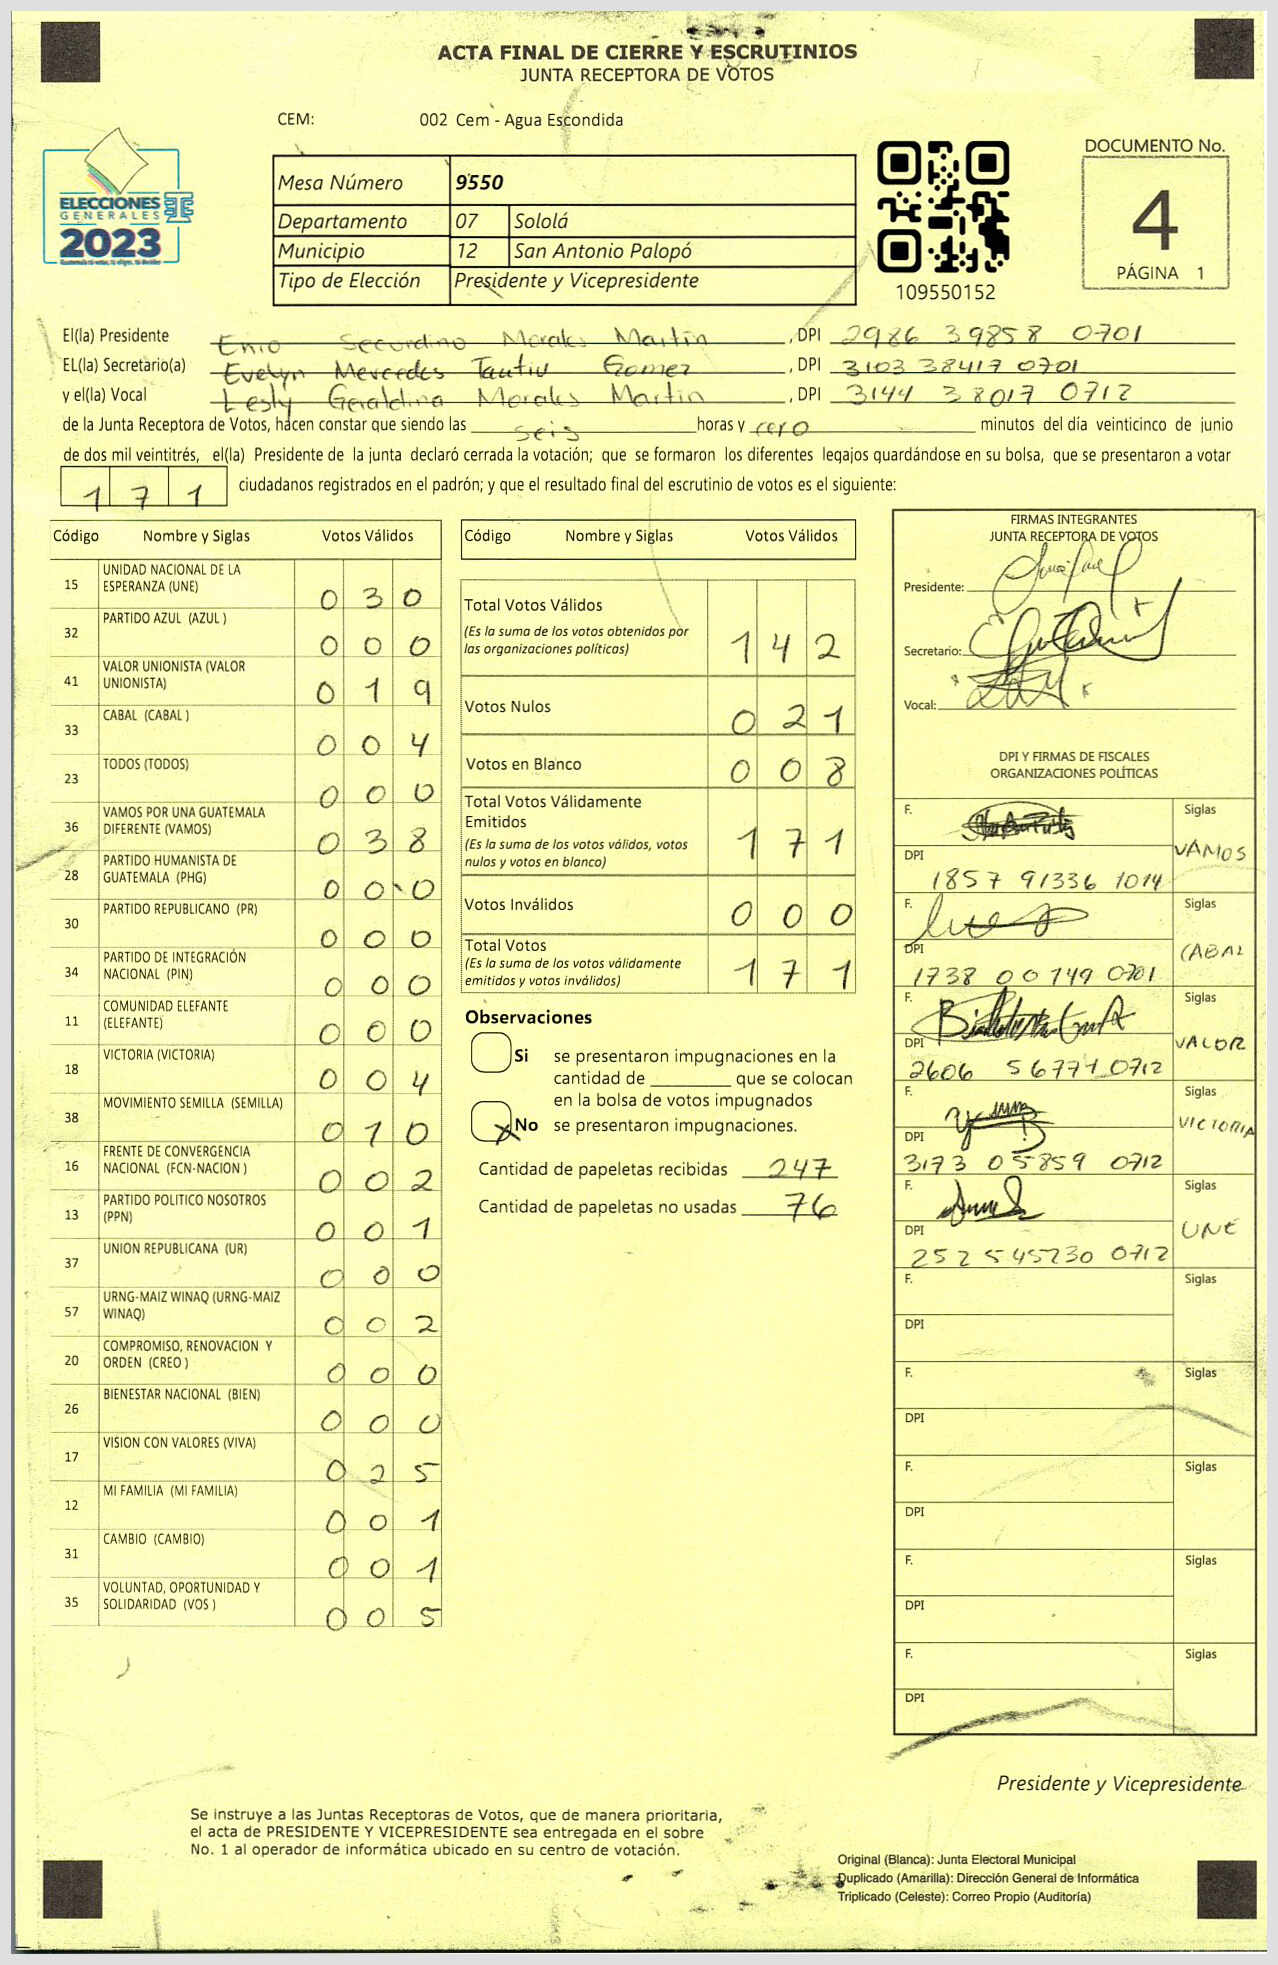 ACTA FINAL DE CIERRE Y ESCRUTINIOS
JUNTA RECEPTORA DE VOTOS
CEM: 002 Cem - Agua Escondida
ELECCIONES
GENERALES
2023
Mesa Número 9550
Departamento 07 Sololá
Municipio 12 San Antonio Palopó
Tipo de Elección Presidente y Vicepresidente
109550152
DOCUMENTO No.
4
PÁGINA 1
El(la) Presidente Enio Secundino Morales Martin, DPI 2986 39858 0701
EL(la) Secretario(a) Evelyn Mercedes Gomez, DPI 3103 38417 0701
y el(la) Vocal Lesly Geraldina Morales Martin, DPI 3144 38017 0712
de la Junta Receptora de Votos, hacen constar que siendo las seis horas y cero minutos del día veinticinco de junio
de dos mil veintitrés, el(la) Presidente de la junta declaró cerrada la votación; que se formaron los diferentes legajos guardándose en su bolsa, que se presentaron a votar
171 ciudadanos registrados en el padrón; y que el resultado final del escrutinio de votos es el siguiente:
Código Nombre y Siglas Votos Válidos
15 UNIDAD NACIONAL DE LA ESPERANZA (UNE) 030
32 PARTIDO AZUL (AZUL ) 000
41 VALOR UNIONISTA (VALOR UNIONISTA) 019
33 CABAL (CABAL ) 004
23 TODOS (TODOS) 000
36 VAMOS POR UNA GUATEMALA DIFERENTE (VAMOS) 038
28 PARTIDO HUMANISTA DE GUATEMALA (PHG) 000
30 PARTIDO REPUBLICANO (PR) 000
34 PARTIDO DE INTEGRACIÓN NACIONAL (PIN) 000
11 COMUNIDAD ELEFANTE (ELEFANTE) 000
18 VICTORIA (VICTORIA) 004
38 MOVIMIENTO SEMILLA (SEMILLA) 010
16 FRENTE DE CONVERGENCIA NACIONAL (FCN-NACION ) 002
13 PARTIDO POLITICO NOSOTROS (PPN) 001
37 UNION REPUBLICANA (UR) 000
57 URNG-MAIZ WINAQ (URNG-MAIZ WINAQ) 002
20 COMPROMISO, RENOVACION Y ORDEN (CREO ) 000
26 BIENESTAR NACIONAL (BIEN) 000
17 VISION CON VALORES (VIVA) 025
12 MI FAMILIA (MI FAMILIA) 001
31 CAMBIO (CAMBIO) 001
35 VOLUNTAD, OPORTUNIDAD Y SOLIDARIDAD (VOS ) 005
Código Nombre y Siglas Votos Válidos
Total Votos Válidos 142
(Es la suma de los votos obtenidos por
las organizaciones políticas)
Votos Nulos 021
Votos en Blanco 008
Total Votos Válidamente
Emitidos 171
(Es la suma de los votos válidos, votos
nulos y votos en blanco)
Votos Inválidos 000
Total Votos 171
(Es la suma de los votos válidamente
emitidos y votos inválidos)
Observaciones
Si se presentaron impugnaciones en la
cantidad de ________ que se colocan
en la bolsa de votos impugnados
X No se presentaron impugnaciones.
Cantidad de papeletas recibidas 247
Cantidad de papeletas no usadas 76
FIRMAS INTEGRANTES
JUNTA RECEPTORA DE VOTOS
Presidente:
Secretario:
Vocal:
DPI Y FIRMAS DE FISCALES
ORGANIZACIONES POLÍTICAS
F. Siglas VAMOS
DPI 1857 91336 1014
F. Siglas CABAL
DPI 1738 00749 0701
F. Siglas VALOR
DPI 2606 56771 0712
F. Siglas VICTORIA
DPI 3173 05859 0712
F. Siglas UNE
DPI 252545230 0712
F. Siglas
DPI
F. Siglas
DPI
F. Siglas
DPI
F. Siglas
DPI
F. Siglas
DPI
Presidente y Vicepresidente
Se instruye a las Juntas Receptoras de Votos, que de manera prioritaria,
el acta de PRESIDENTE Y VICEPRESIDENTE sea entregada en el sobre
No. 1 al operador de informática ubicado en su centro de votación.
Original (Blanca): Junta Electoral Municipal
Duplicado (Amarilla): Dirección General de Informática
Triplicado (Celeste): Correo Propio (Auditoría)